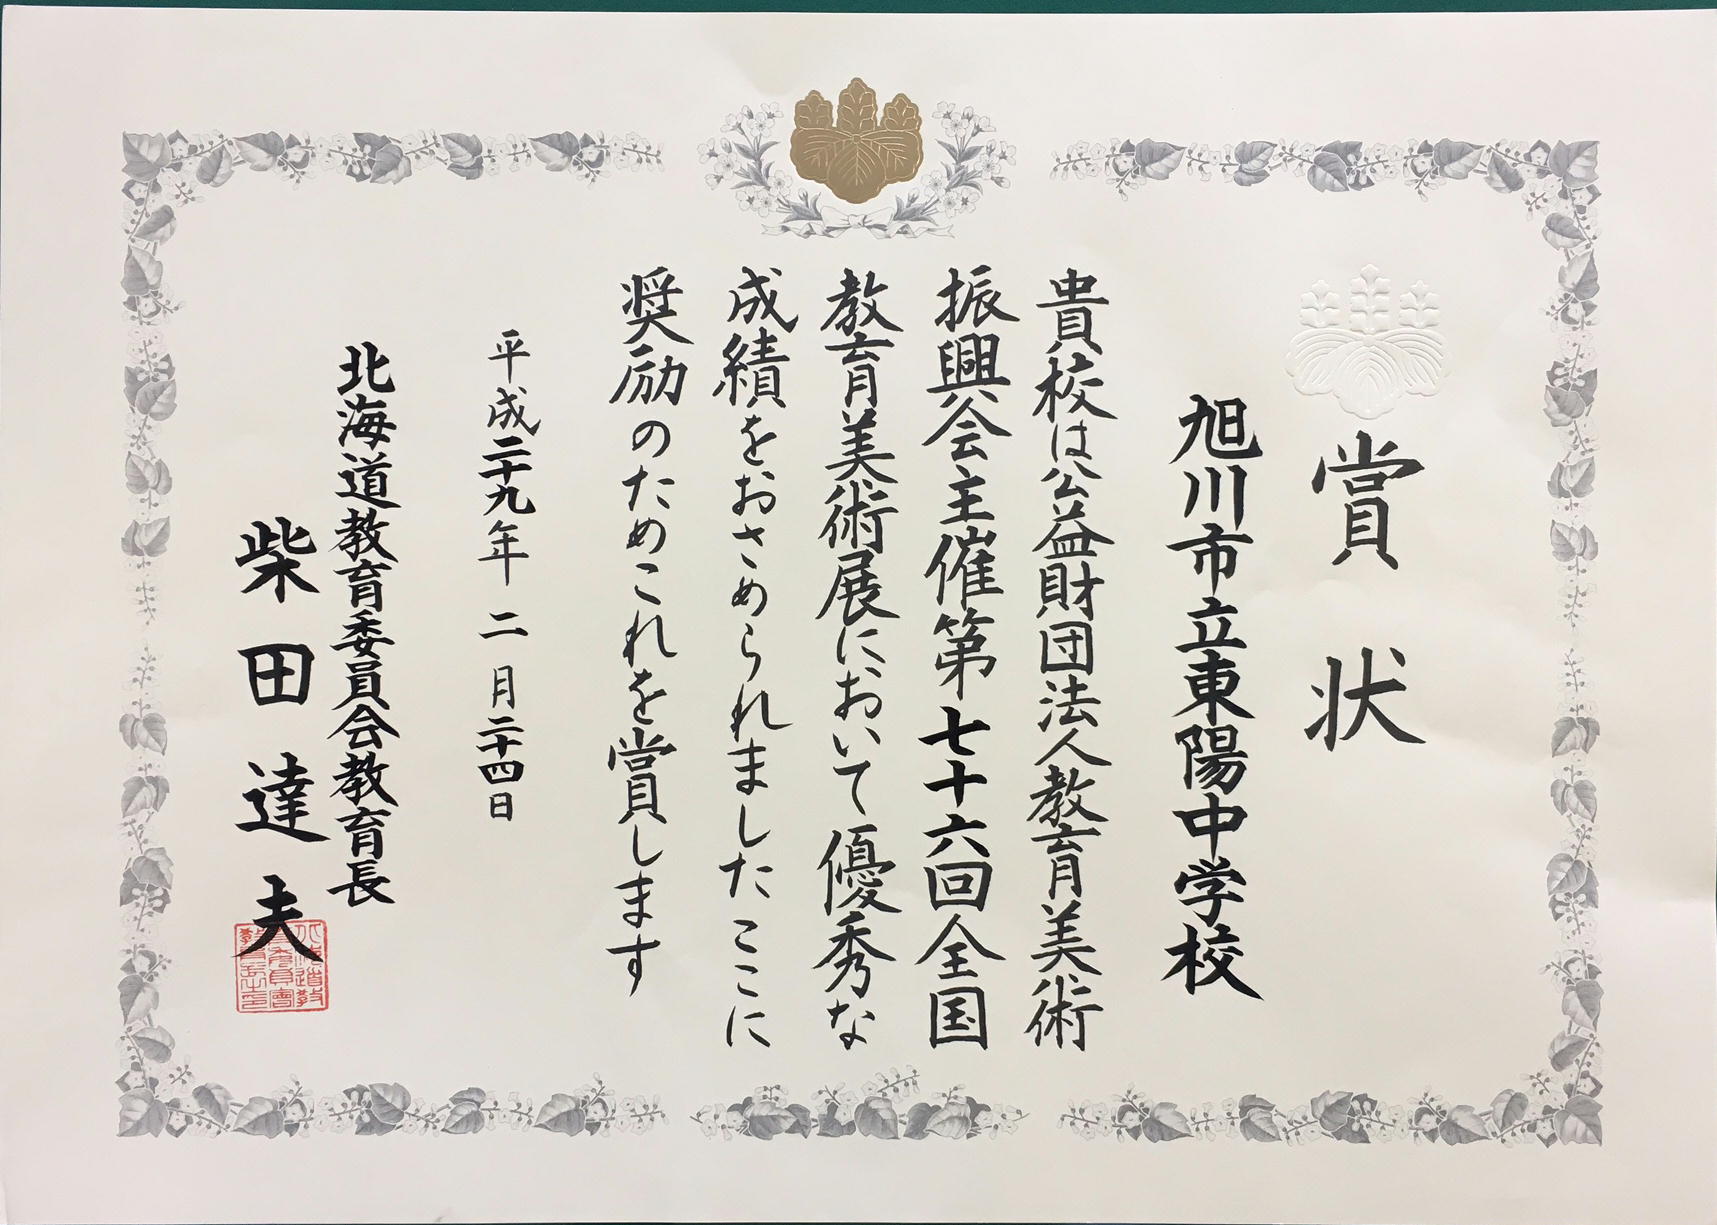 賞状
旭川市立東陽中学校
貴校は公益財団法人教育美術
振興会主催第七十六回全国
教育美術展において優秀な
成績をおさめられましたここに
奨励のためこれを賞します
平成二十九年二月二十四日
北海道教育委員会教育長
柴田達夫